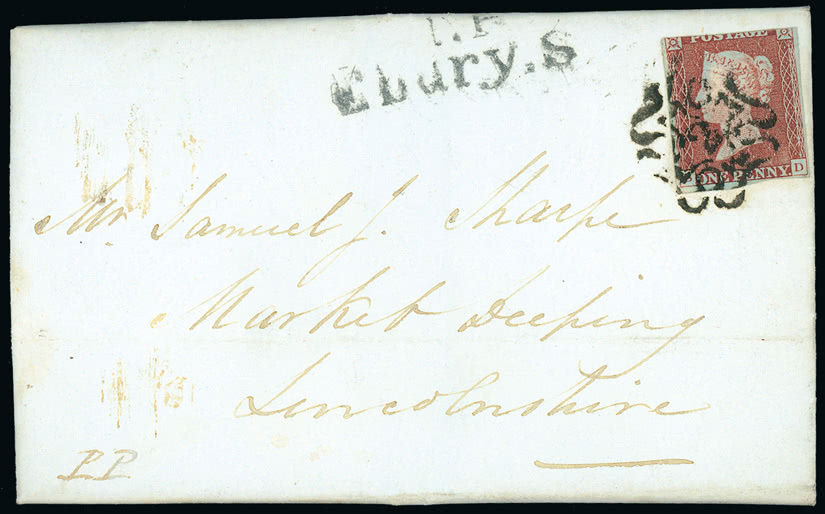 T.P
Ebury.S
POSTAGE
ONE PENNY
D
Mr. Samuel J. Sharpe
Market Deeping
Lincolnshire
P.P